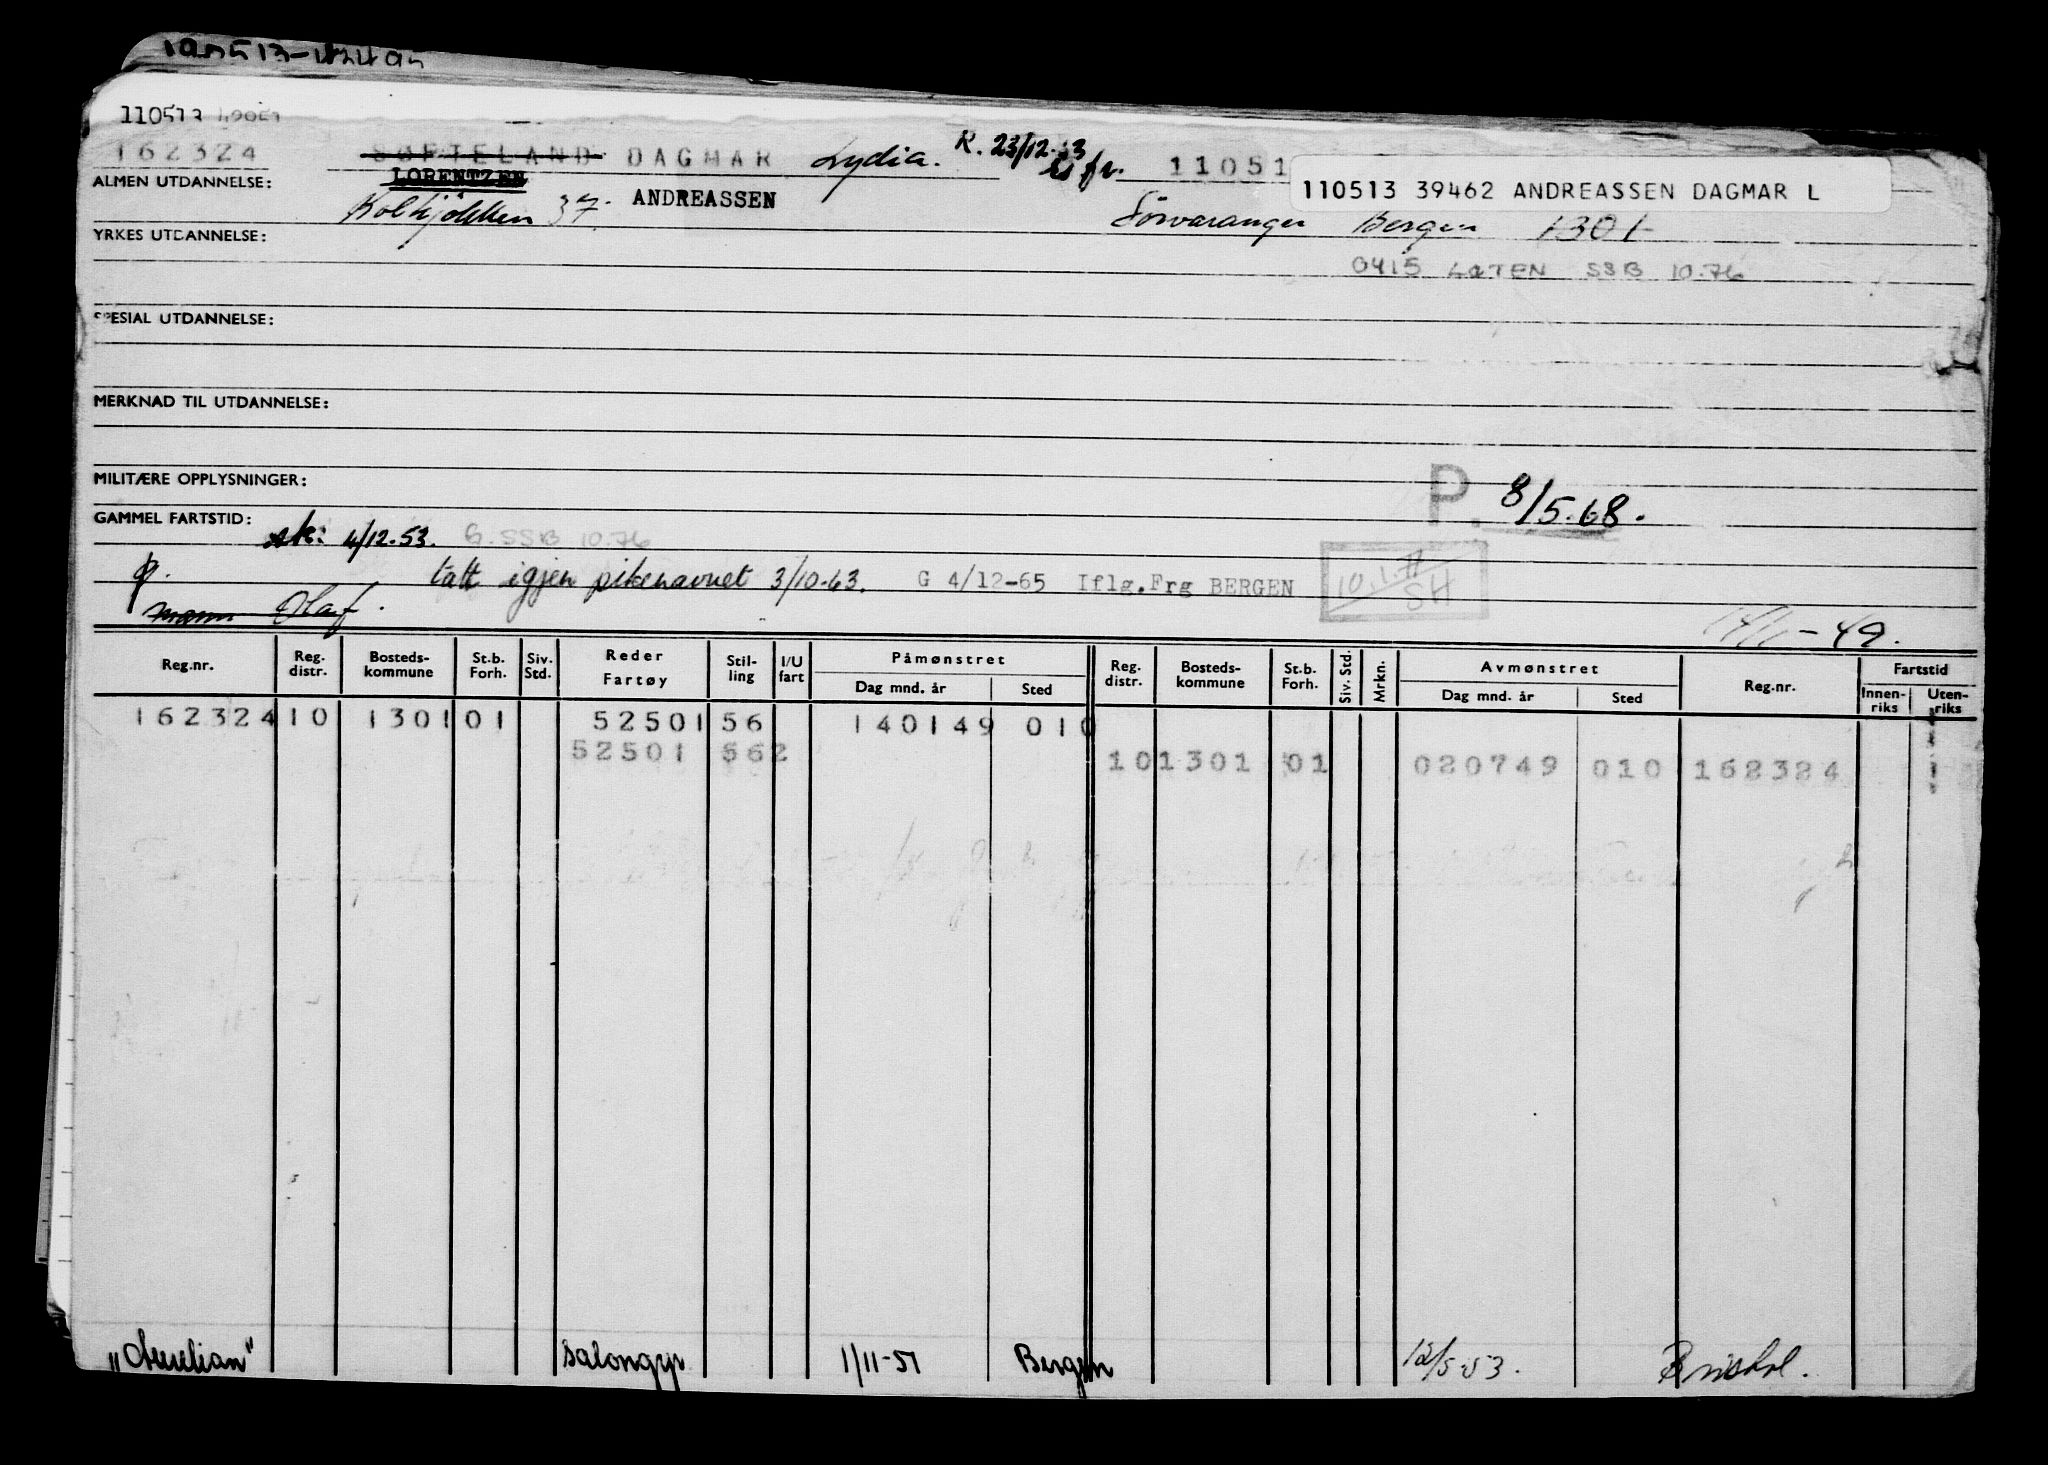 110513
162324 SØFTELAND DAGMAR Lydia. K. 23/12-53 fr. 11051
110513 39462 ANDREASSEN DAGMAR L
ALMEN UTDANNELSE: LORENTZEN
37. ANDREASSEN Sörvaranger Bergen 1301
YRKES UTDANNELSE:
0415 LØTEN SSB 10.76
SPESIAL UTDANNELSE:
MERKNAD TIL UTDANNELSE:
MILITÆRE OPPLYSNINGER:
P. 8/5.68.
GAMMEL FARTSTID:
sk: 4/12-53. G. SSB 10.76
p. tatt igjen pikenavnet 3/10-63. G 4/12-65 Iflg.Frg BERGEN SH
mann Olaf.
-49.
Reg.nr. Reg. distr. Bosteds- kommune St.b. Forh. Siv. Std. Reder Fartøy Stil- ling I/U fart Påmønstret Dag mnd. år Sted Reg. distr. Bosteds- kommune St.b. Forh. Siv. Std. Mrkn. Avmønstret Dag mnd. år Sted Reg.nr. Fartstid Innen- riks Uten- riks
162324 10 1301 01 52501 56 140149 010
52501 562 10 1301 01 020749 010 162324
"Aurelian" salongpr 1/11-51 Bergen 12/5-53. Bristol.